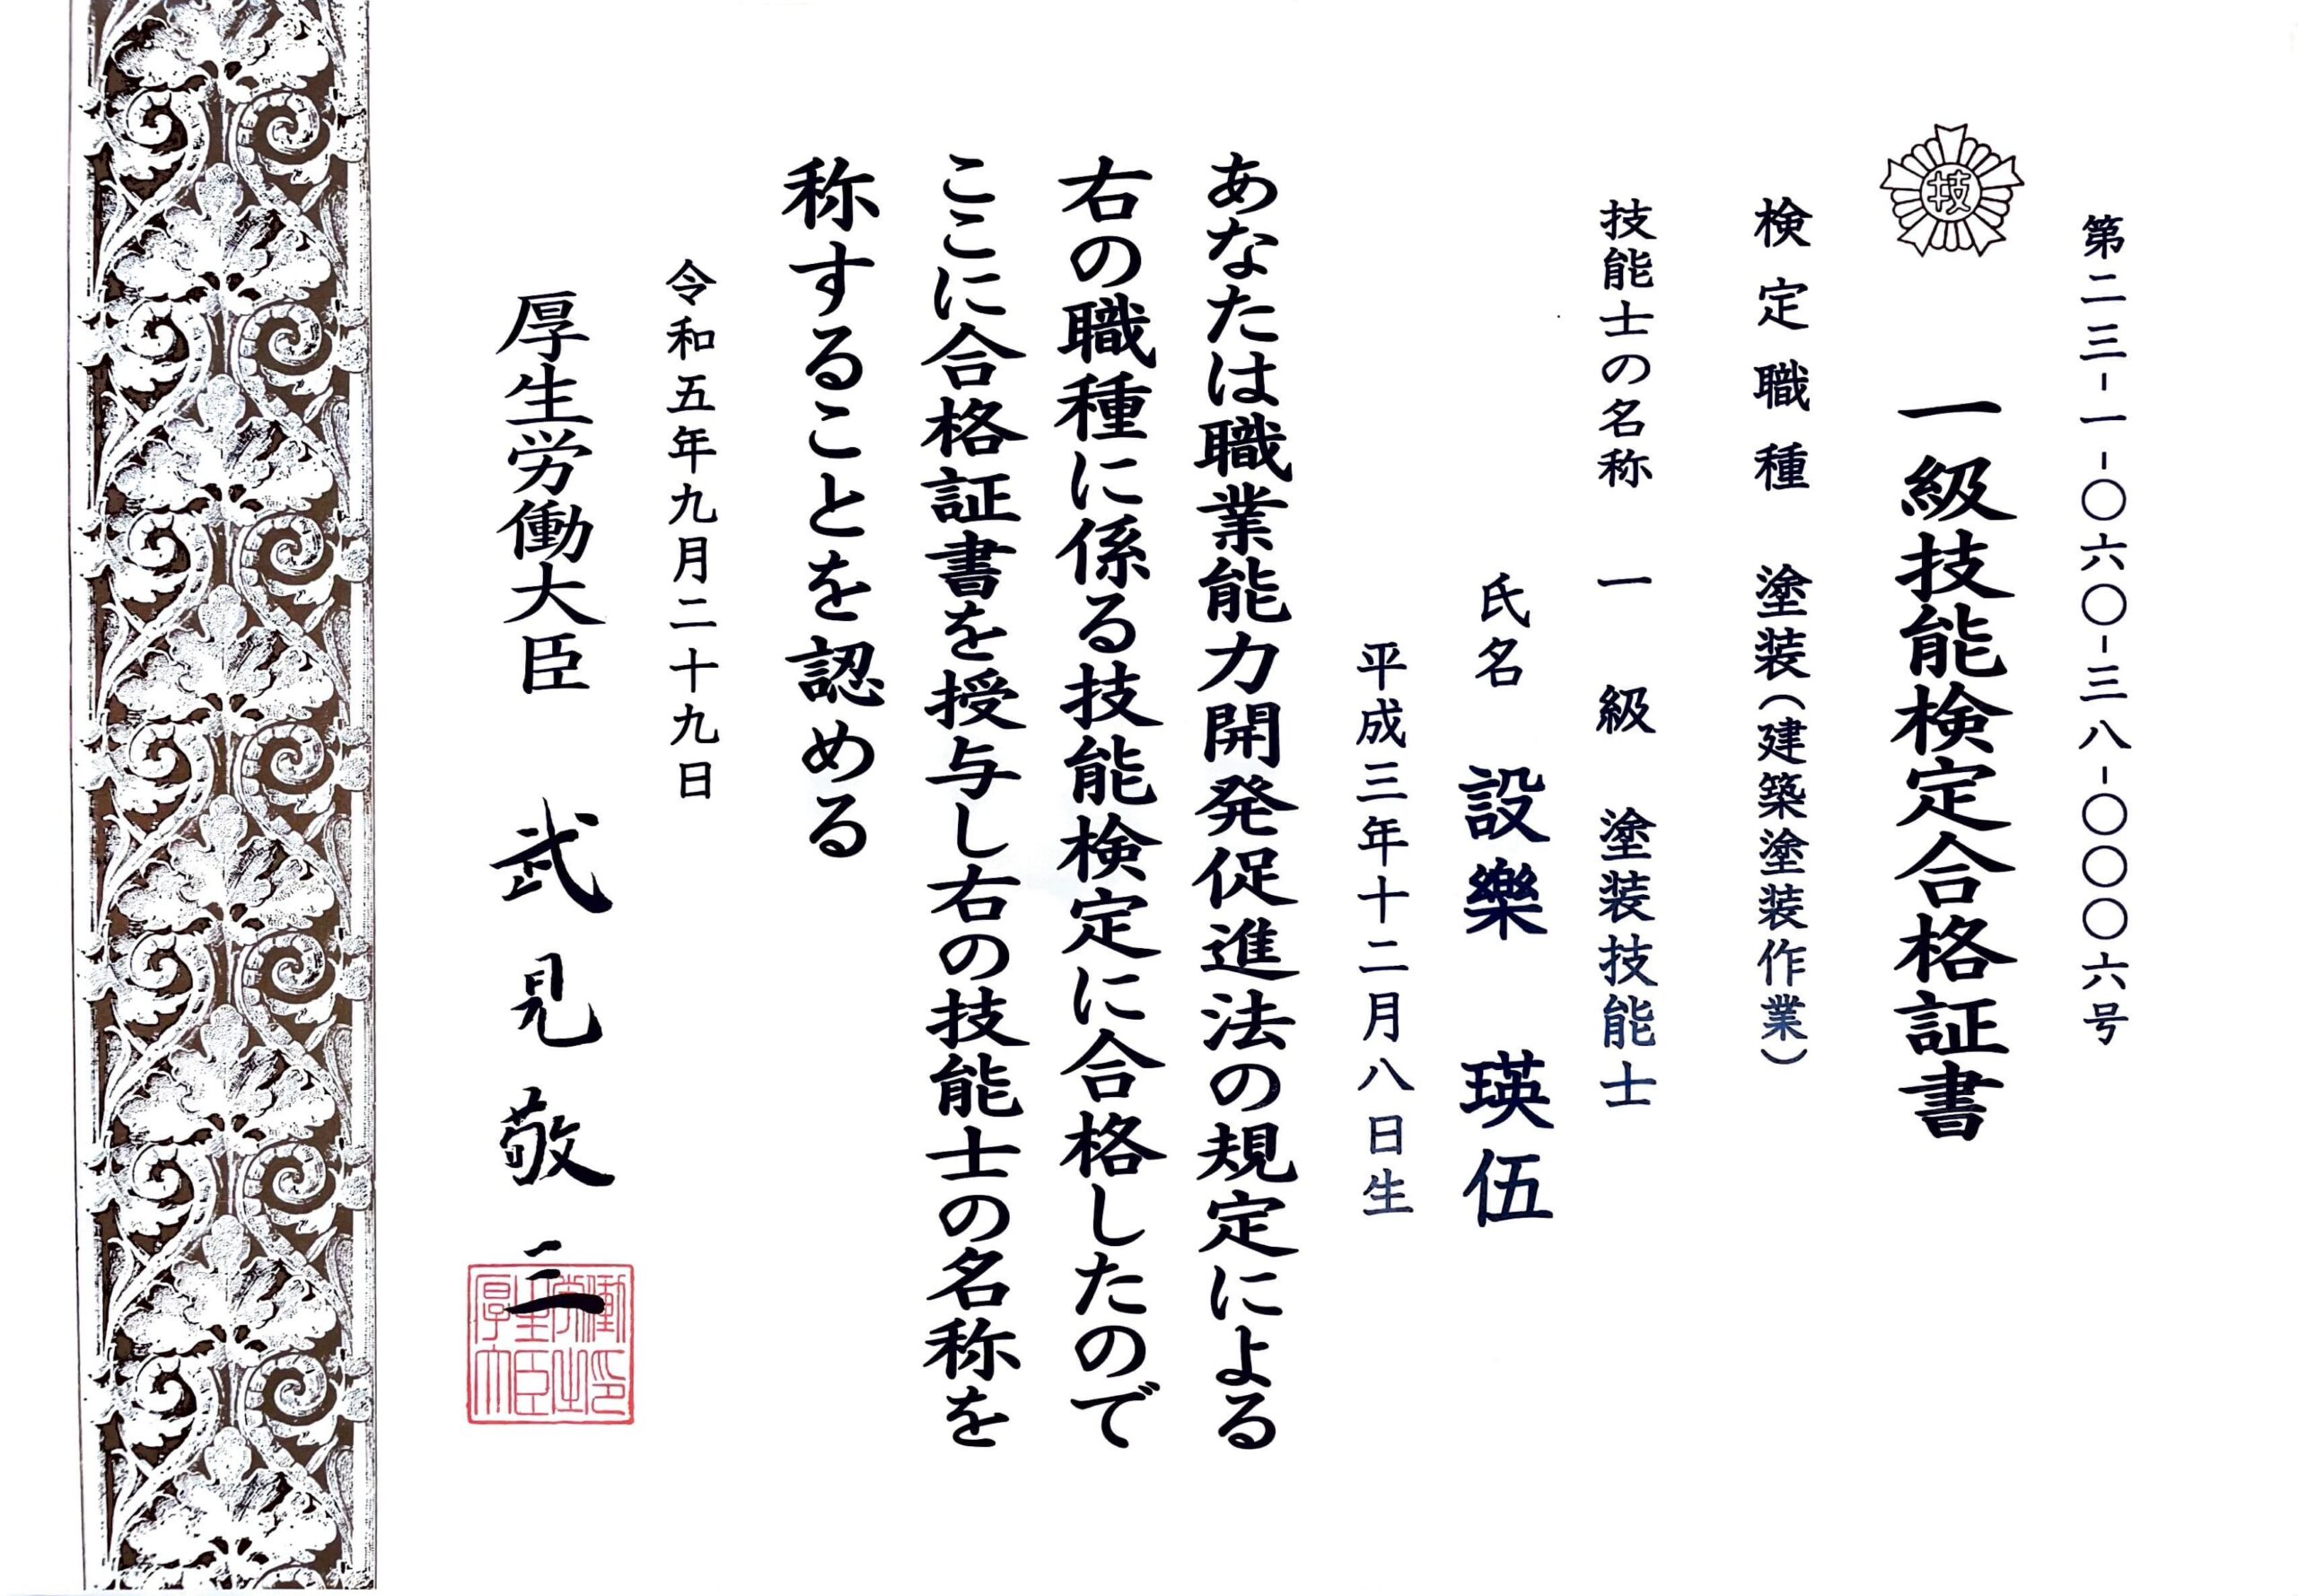 第二三-一-〇六〇-三八-〇〇〇六号
技
一級技能検定合格証書
検定職種 塗装(建築塗装作業)
技能士の名称 一級 塗装技能士
氏名 設樂 瑛伍
平成三年十二月八日生
あなたは職業能力開発促進法の規定による
右の職種に係る技能検定に合格したので
ここに合格証書を授与し右の技能士の名称を
称することを認める
令和五年九月二十九日
厚生労働大臣 武見敬三
厚生労働大臣之印